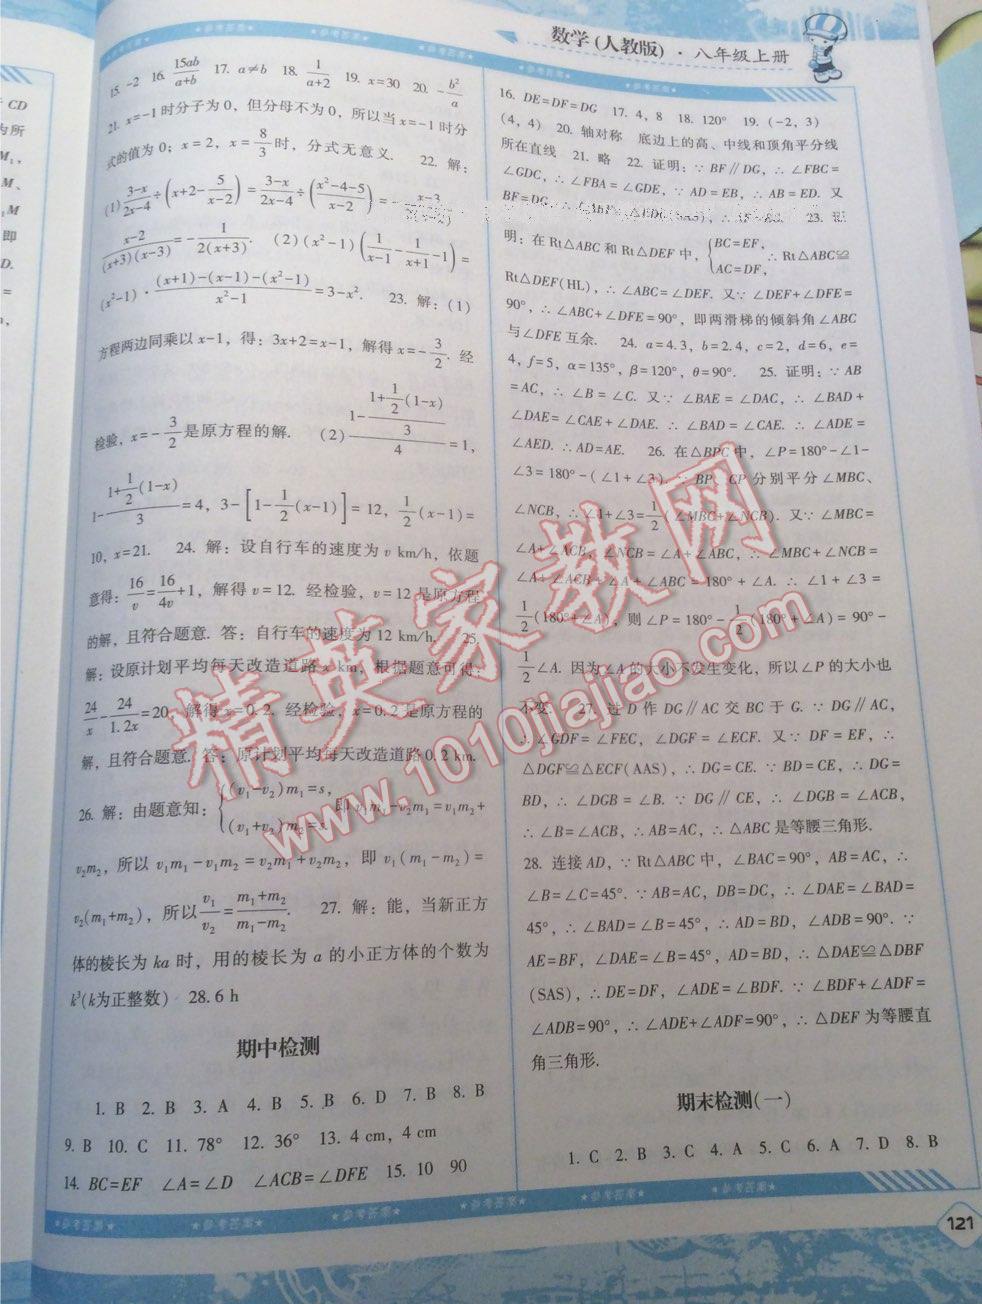 数学(人教版)·八年级上册
15. -2 16. 15ab/(a+b) 17. a≠b 18. 1/(a+2) 19. x=30 20. -b²/a
21. x=-1时分子为0，但分母不为0，所以当x=-1时分
式的值为0；x=2，x=8/3时，分式无意义. 22. 解：
(1) (3-x)/(2x-4)÷(x+2-5/(x-2))=(3-x)/(2x-4)÷((x²-4-5)/(x-2))=-
(x-2)/((x+3)(x-3))=-1/(2(x+3)). (2)(x²-1)(1/(x-1)-1/(x+1)-1)=
(x²-1)·((x+1)-(x-1)-(x²-1))/(x²-1)=3-x². 23. 解：(1)
方程两边同乘以x-1，得：3x+2=x-1，解得x=-3/2. 经
检验，x=-3/2是原方程的解. (2) (1-(1+1/2(1-x))/3)/4=1，
1-(1+1/2(1-x))/3=4，3-[1-1/2(x-1)]=12，1/2(x-1)=
10，x=21. 24. 解：设自行车的速度为v km/h，依题
意得：16/v=16/4v+1，解得v=12. 经检验，v=12是原方程
的解，且符合题意. 答：自行车的速度为12 km/h. 25.
解：设原计划平均每天改造道路x km，根据题意可得：
24/x-24/1.2x=20，解得x=0.2. 经检验，x=0.2是原方程的
解，且符合题意. 答：原计划平均每天改造道路0.2 km.
26. 解：由题意知：{(v₁-v₂)m₁=s，(v₁+v₂)m₂=s，即v₁m₁-v₂m₁=v₁m₂+
v₂m₂，所以v₁m₁-v₁m₂=v₂m₁+v₂m₂，即v₁(m₁-m₂)=
v₂(m₁+m₂)，所以v₁/v₂=(m₁+m₂)/(m₁-m₂). 27. 解：能，当新正方
体的棱长为ka时，用的棱长为a的小正方体的个数为
k³(k为正整数) 28. 6 h
期中检测
1. B 2. B 3. A 4. B 5. B 6. D 7. B 8. B
9. B 10. C 11. 78° 12. 36° 13. 4 cm，4 cm
14. BC=EF ∠A=∠D ∠ACB=∠DFE 15. 10 90
16. DE=DF=DG 17. 4，8 18. 120° 19. (-2，3)
(4，4) 20. 轴对称 底边上的高、中线和顶角平分线
所在直线 21. 略 22. 证明：∵BF∥DG，∴∠FBC=
∠GDC，∴∠FBA=∠GDE，∵AD=EB，∴AB=ED. 又
BF=DG，23. 证
明：在Rt△ABC和Rt△DEF中，{BC=EF，AC=DF，∴Rt△ABC≌
Rt△DEF(HL)，∴∠ABC=∠DEF. 又∵∠DEF+∠DFE=
90°，∴∠ABC+∠DFE=90°，即两滑梯的倾斜角∠ABC
与∠DFE互余. 24. a=4.3，b=2.4，c=2，d=6，e=
4，f=5，α=135°，β=120°，θ=90°. 25. 证明：∵AB
=AC，∴∠B=∠C. 又∵∠BAE=∠DAC，∴∠BAD+
∠DAE=∠CAE+∠DAE. ∴∠BAD=∠CAE. ∴∠ADE=
∠AED. ∴AD=AE. 26. 在△BPC中，∠P=180°-∠1-
∠3=180°-(∠1+∠3)∵BP、CP分别平分∠MBC、
∠NCB，∴∠1+∠3=1/2(∠MBC+∠NCB). 又∵∠MBC=
∠A+∠ACB，∠NCB=∠A+∠ABC，∴∠MBC+∠NCB=
∠A+∠ACB+∠A+∠ABC=180°+∠A. ∴∠1+∠3=
1/2(180°+∠A)，则∠P=180°-1/2(180°+∠A)=90°-
1/2∠A. 因为∠A的大小不发生变化，所以∠P的大小也
不变. 27. 过D作DG∥AC交BC于G. ∵DG∥AC，
∴∠GDF=∠FEC，∠DGF=∠ECF. 又∵DF=EF，∴
△DGF≌△ECF(AAS)，∴DG=CE. ∵BD=CE，∴DG=
BD，∴∠DGB=∠B. ∵DG∥CE，∴∠DGB=∠ACB，
∴∠B=∠ACB，∴AB=AC，∴△ABC是等腰三角形.
28. 连接AD，∵Rt△ABC中，∠BAC=90°，AB=AC，∴
∠B=∠C=45°. ∵AB=AC，DB=DC，∴∠DAE=∠BAD=
45°，∴∠BAD=∠B=45°，∴AD=BD，∠ADB=90°. ∵
AE=BF，∠DAE=∠B=45°，AD=BD，∴△DAE≌△DBF
(SAS)，∴DE=DF，∠ADE=∠BDF. ∵∠BDF+∠ADF=
∠ADB=90°，∴∠ADE+∠ADF=90°，∴△DEF为等腰直
角三角形.
期末检测(一)
1. C 2. B 3. C 4. A 5. C 6. A 7. D 8. B
121
精英家教网
www.1010jiajiao.com